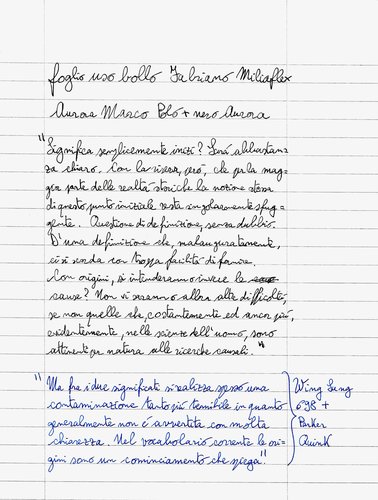 foglio uso bollo Fabriano Miliaflex
Aurora Marco Polo + nero Aurora
"Significa semplicemente inizi? Sarà abbastan-
za chiaro. Con la riserva, però, che per la mag-
gior parte delle realtà storiche la nozione stessa
di questo punto iniziale resta singolarmente sfug=
gente. Questione di definizione, senza dubbio.
D'una definizione che, malauguratamente,
ci si scorda con troppa facilità di fornire.
Con origini, si intenderanno invece le
cause? Non vi saranno allora altre difficoltà,
se non quelle che, costantemente ed ancor più,
evidentemente, nelle scienze dell'uomo, sono
attinenti per natura alle ricerche causali."
"Ma fra i due significati si realizza spesso una
contaminazione tanto più temibile in quanto
generalmente non è avvertita con molta
chiarezza. Nel vocabolario corrente le ori-
gini sono un cominciamento che spiega."
Wing Sung
698 +
Parker
Quink